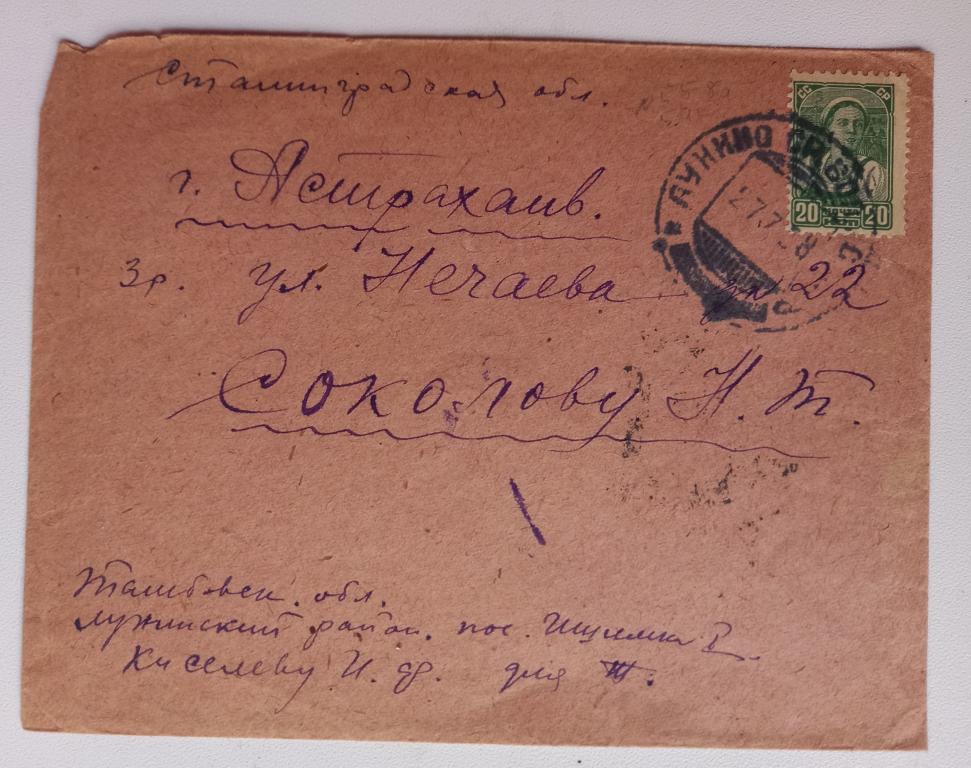 Сталинградская обл.
г. Астрахань.
3р. ул. Нечаева 22
Соколову Н. Т.
Тамбовск. обл.
район. пос.
Киселеву И. Ф. для Т.
СС СР
20 ПОЧТА 20
ЛУНИНО
27.7